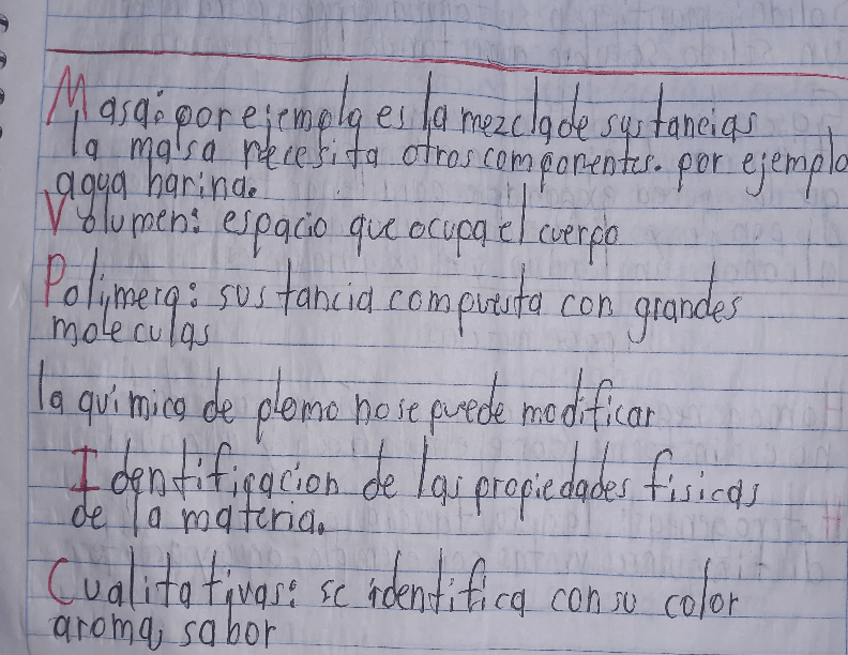 Masa: por ejemplo es la mezcla de sustancias
la masa necesita otros componentes. por ejemplo
agua harina.
Volumen: espacio que ocupa el cuerpo
Polimera: sustancia compuesta con grandes
moleculas
la quimica de plomo no se puede modificar
Identificacion de las propiedades fisicas
de la materia.
Cualitativas: se identifica con su color
aroma, sabor